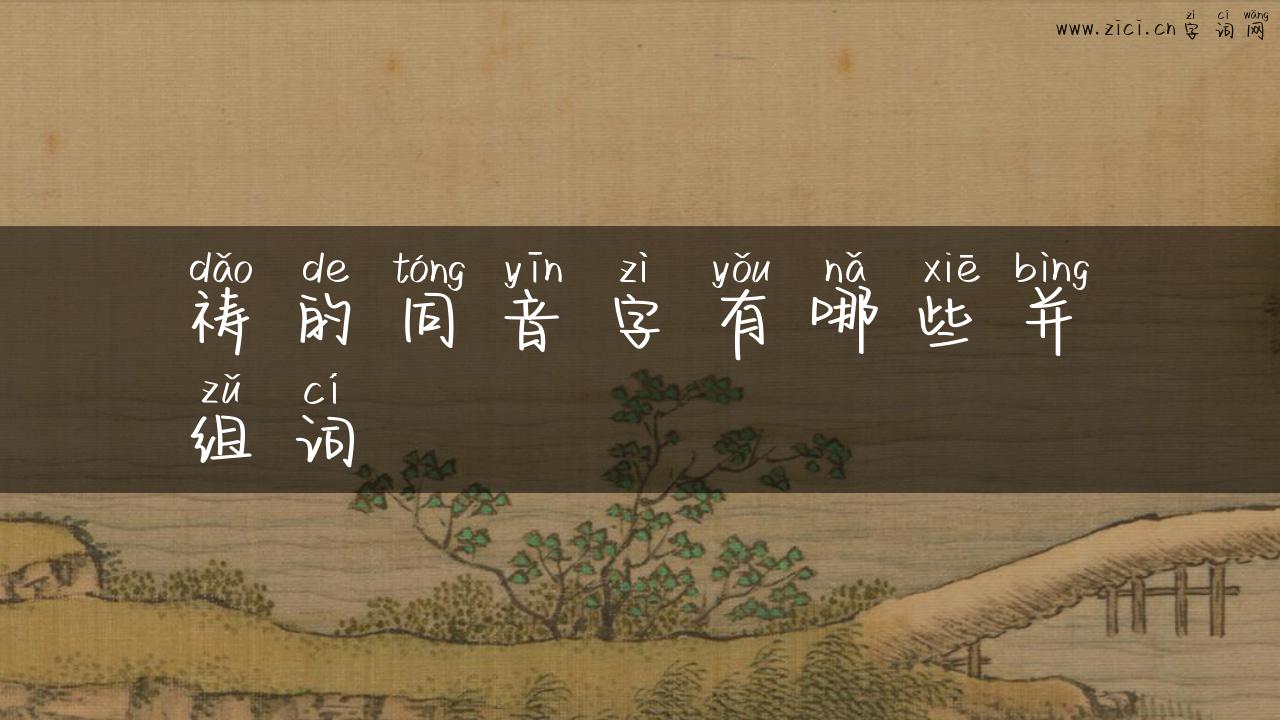 zì cí wǎng
www.zici.cn 字 词 网
dǎo de tóng yīn zì yǒu nǎ xiē bìng
祷 的 同 音 字 有 哪 些 并
zǔ cí
组 词